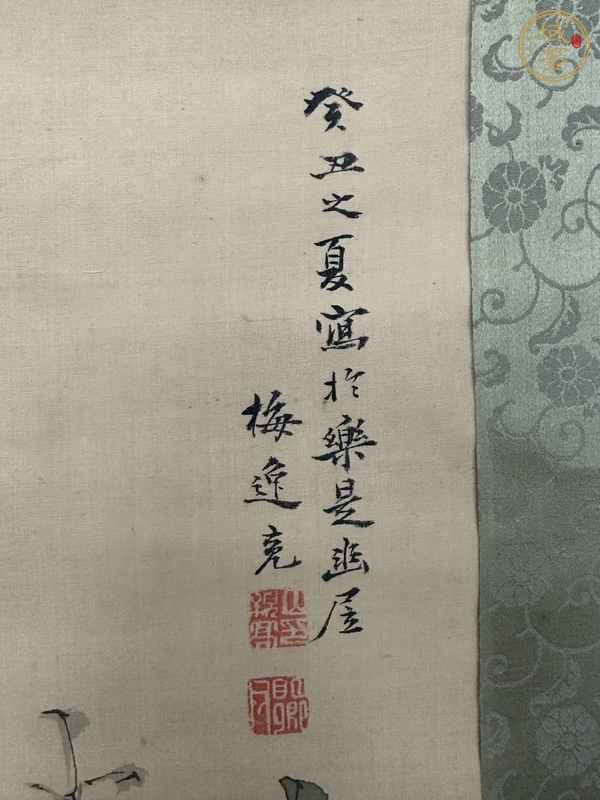 癸丑之夏寫於樂是幽屋
梅逸亮